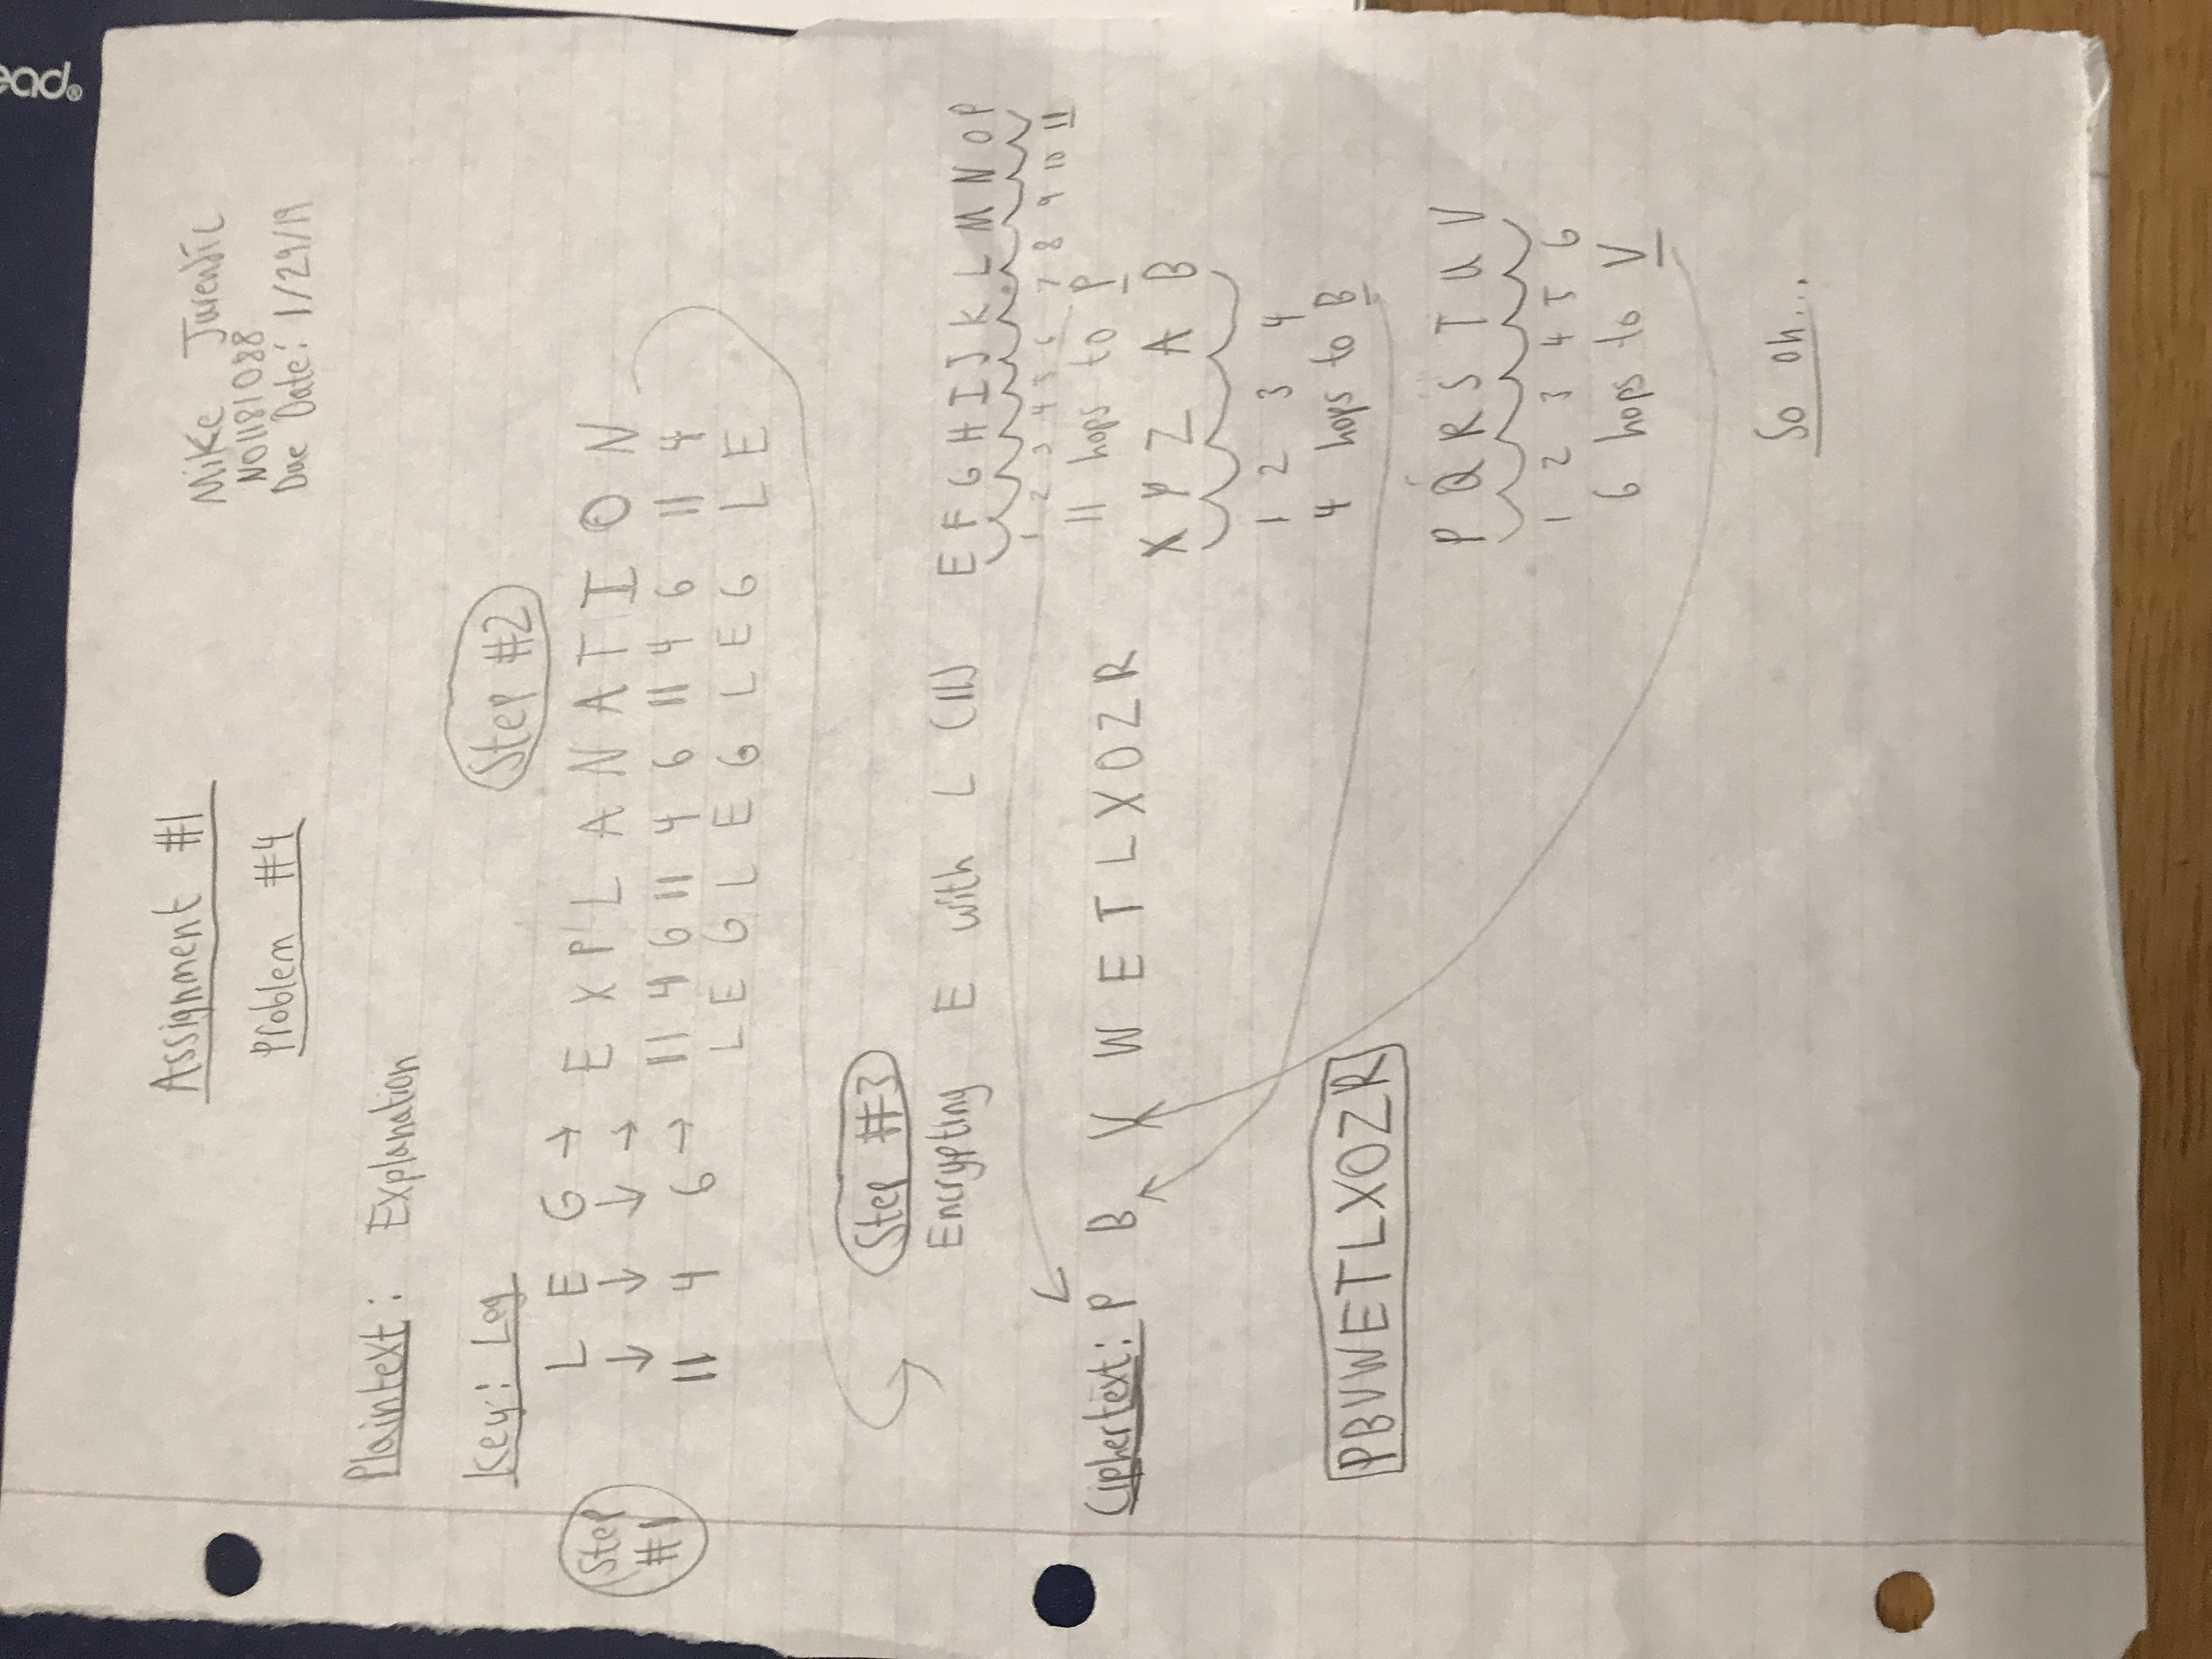 ead®
Assignment #1
Problem #4
Mike Jurendic
N01181088
Due Date: 1/29/19
Plaintext: Explanation
Key: Leg
Step #1
L E G →
↓ ↓ ↓ →
11 4 6 →
Step #2
E X P L A N A T I O N
11 4 6 11 4 6 11 4 6 11 4
L E G L E G L E G L E
Step #3
Encrypting E with L (11)
E F G H I J K L M N O P
1 2 3 4 5 6 7 8 9 10 11
11 hops to P
Ciphertext: P B V W E T L X O Z R
X Y Z A B
1 2 3 4
4 hops to B
PBVWETLXOZR
P Q R S T U V
1 2 3 4 5 6
6 hops to V
So on...